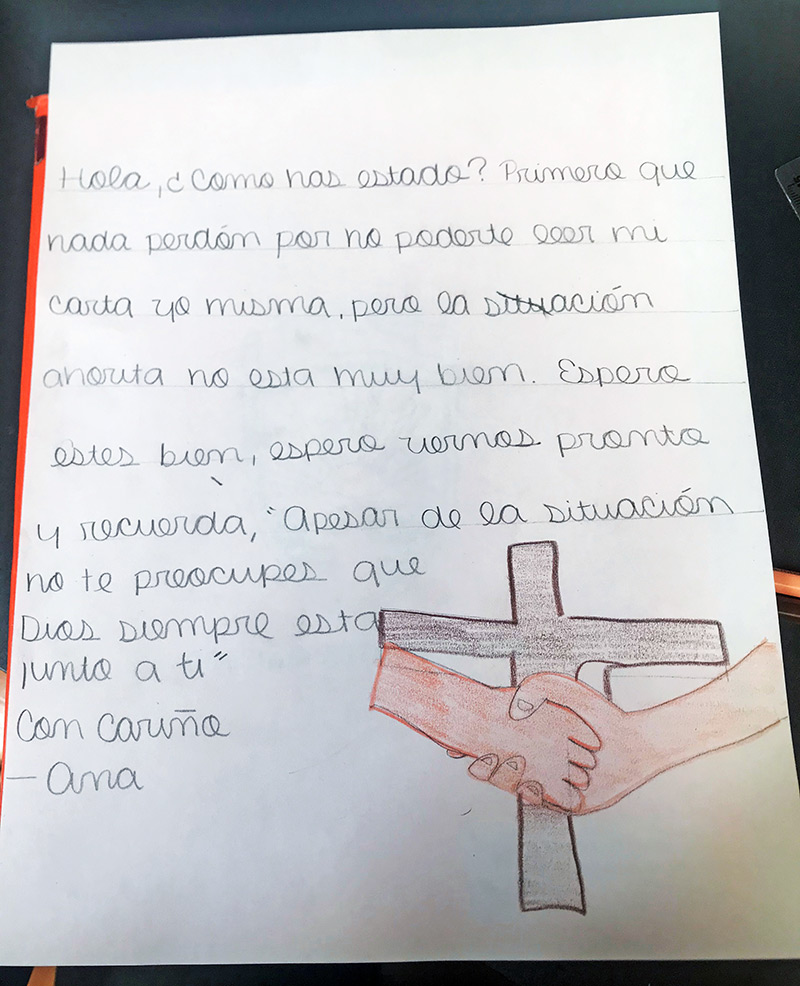 Hola, ¿Como has estado? Primero que
nada perdón por no poderte leer mi
carta yo misma, pero la situación
ahorita no esta muy bien. Espero
estes bien, espero vernos pronto
y recuerda, "Apesar de la situación
no te preocupes que
Dios siempre esta
junto a ti"
Con Cariño
- Ana